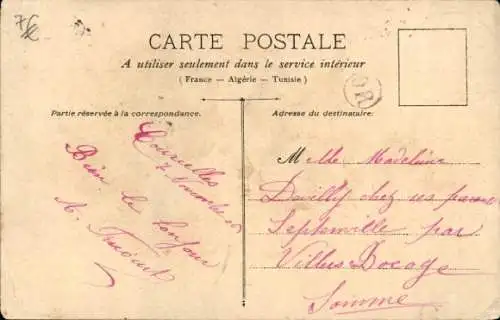 CARTE POSTALE
A utiliser seulement dans le service intérieur
( France — Algérie — Tunisie )
OR
Partie réservée à la correspondance.
Adresse du destinataire.
Courcelles
7 Novembre 06
Bien le bonjour
A.
Melle Madeleine
Davilly chez ses parents
Septenville par
Villers Bocage
Somme